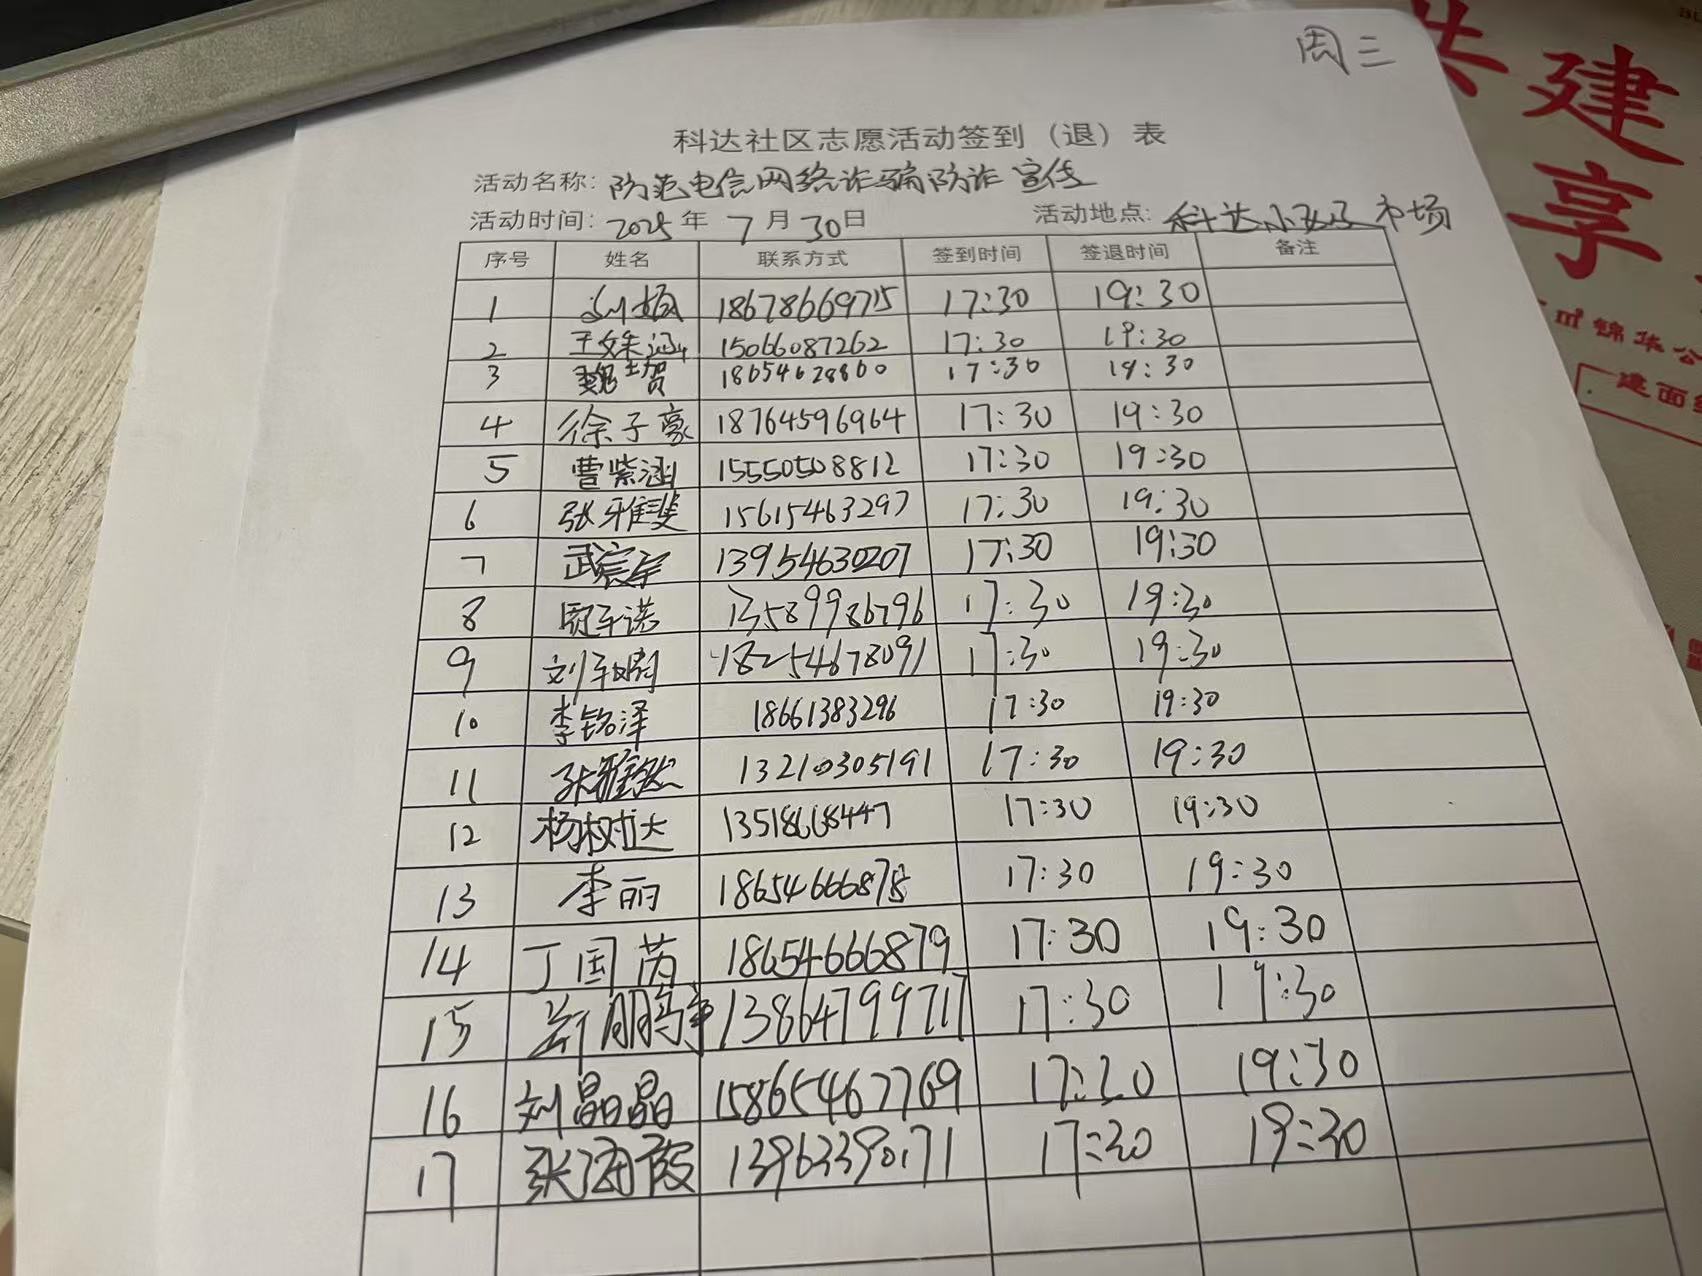 周三
共建
享
㎡锦华公
建面约
科达社区志愿活动签到（退）表
活动名称：防范电信网络诈骗防诈宣传
活动时间：2025年7月30日 活动地点：科达小夜市场
序号 姓名 联系方式 签到时间 签退时间 备注
1 刘娟 18678669715 17:30 19:30
2 王姝涵 15066087262 17:30 19:30
3 魏士贺 18654628860 17:30 19:30
4 徐子豪 18764596964 17:30 19:30
5 曹紫涵 15550508812 17:30 19:30
6 张雅斐 15615463297 17:30 19:30
7 武宸宇 13954630207 17:30 19:30
8 贾子诺 13589986796 17:30 19:30
9 刘 18254678091 17:30 19:30
10 李铭泽 18661383296 17:30 19:30
11 张雅然 13210305191 17:30 19:30
12 杨树达 13518668447 17:30 19:30
13 李丽 18654666875 17:30 19:30
14 丁国芮 18654666879 17:30 19:30
15 13864799717 17:30 19:30
16 刘晶晶 15865467769 17:30 19:30
17 张海霞 13963390171 17:30 19:30